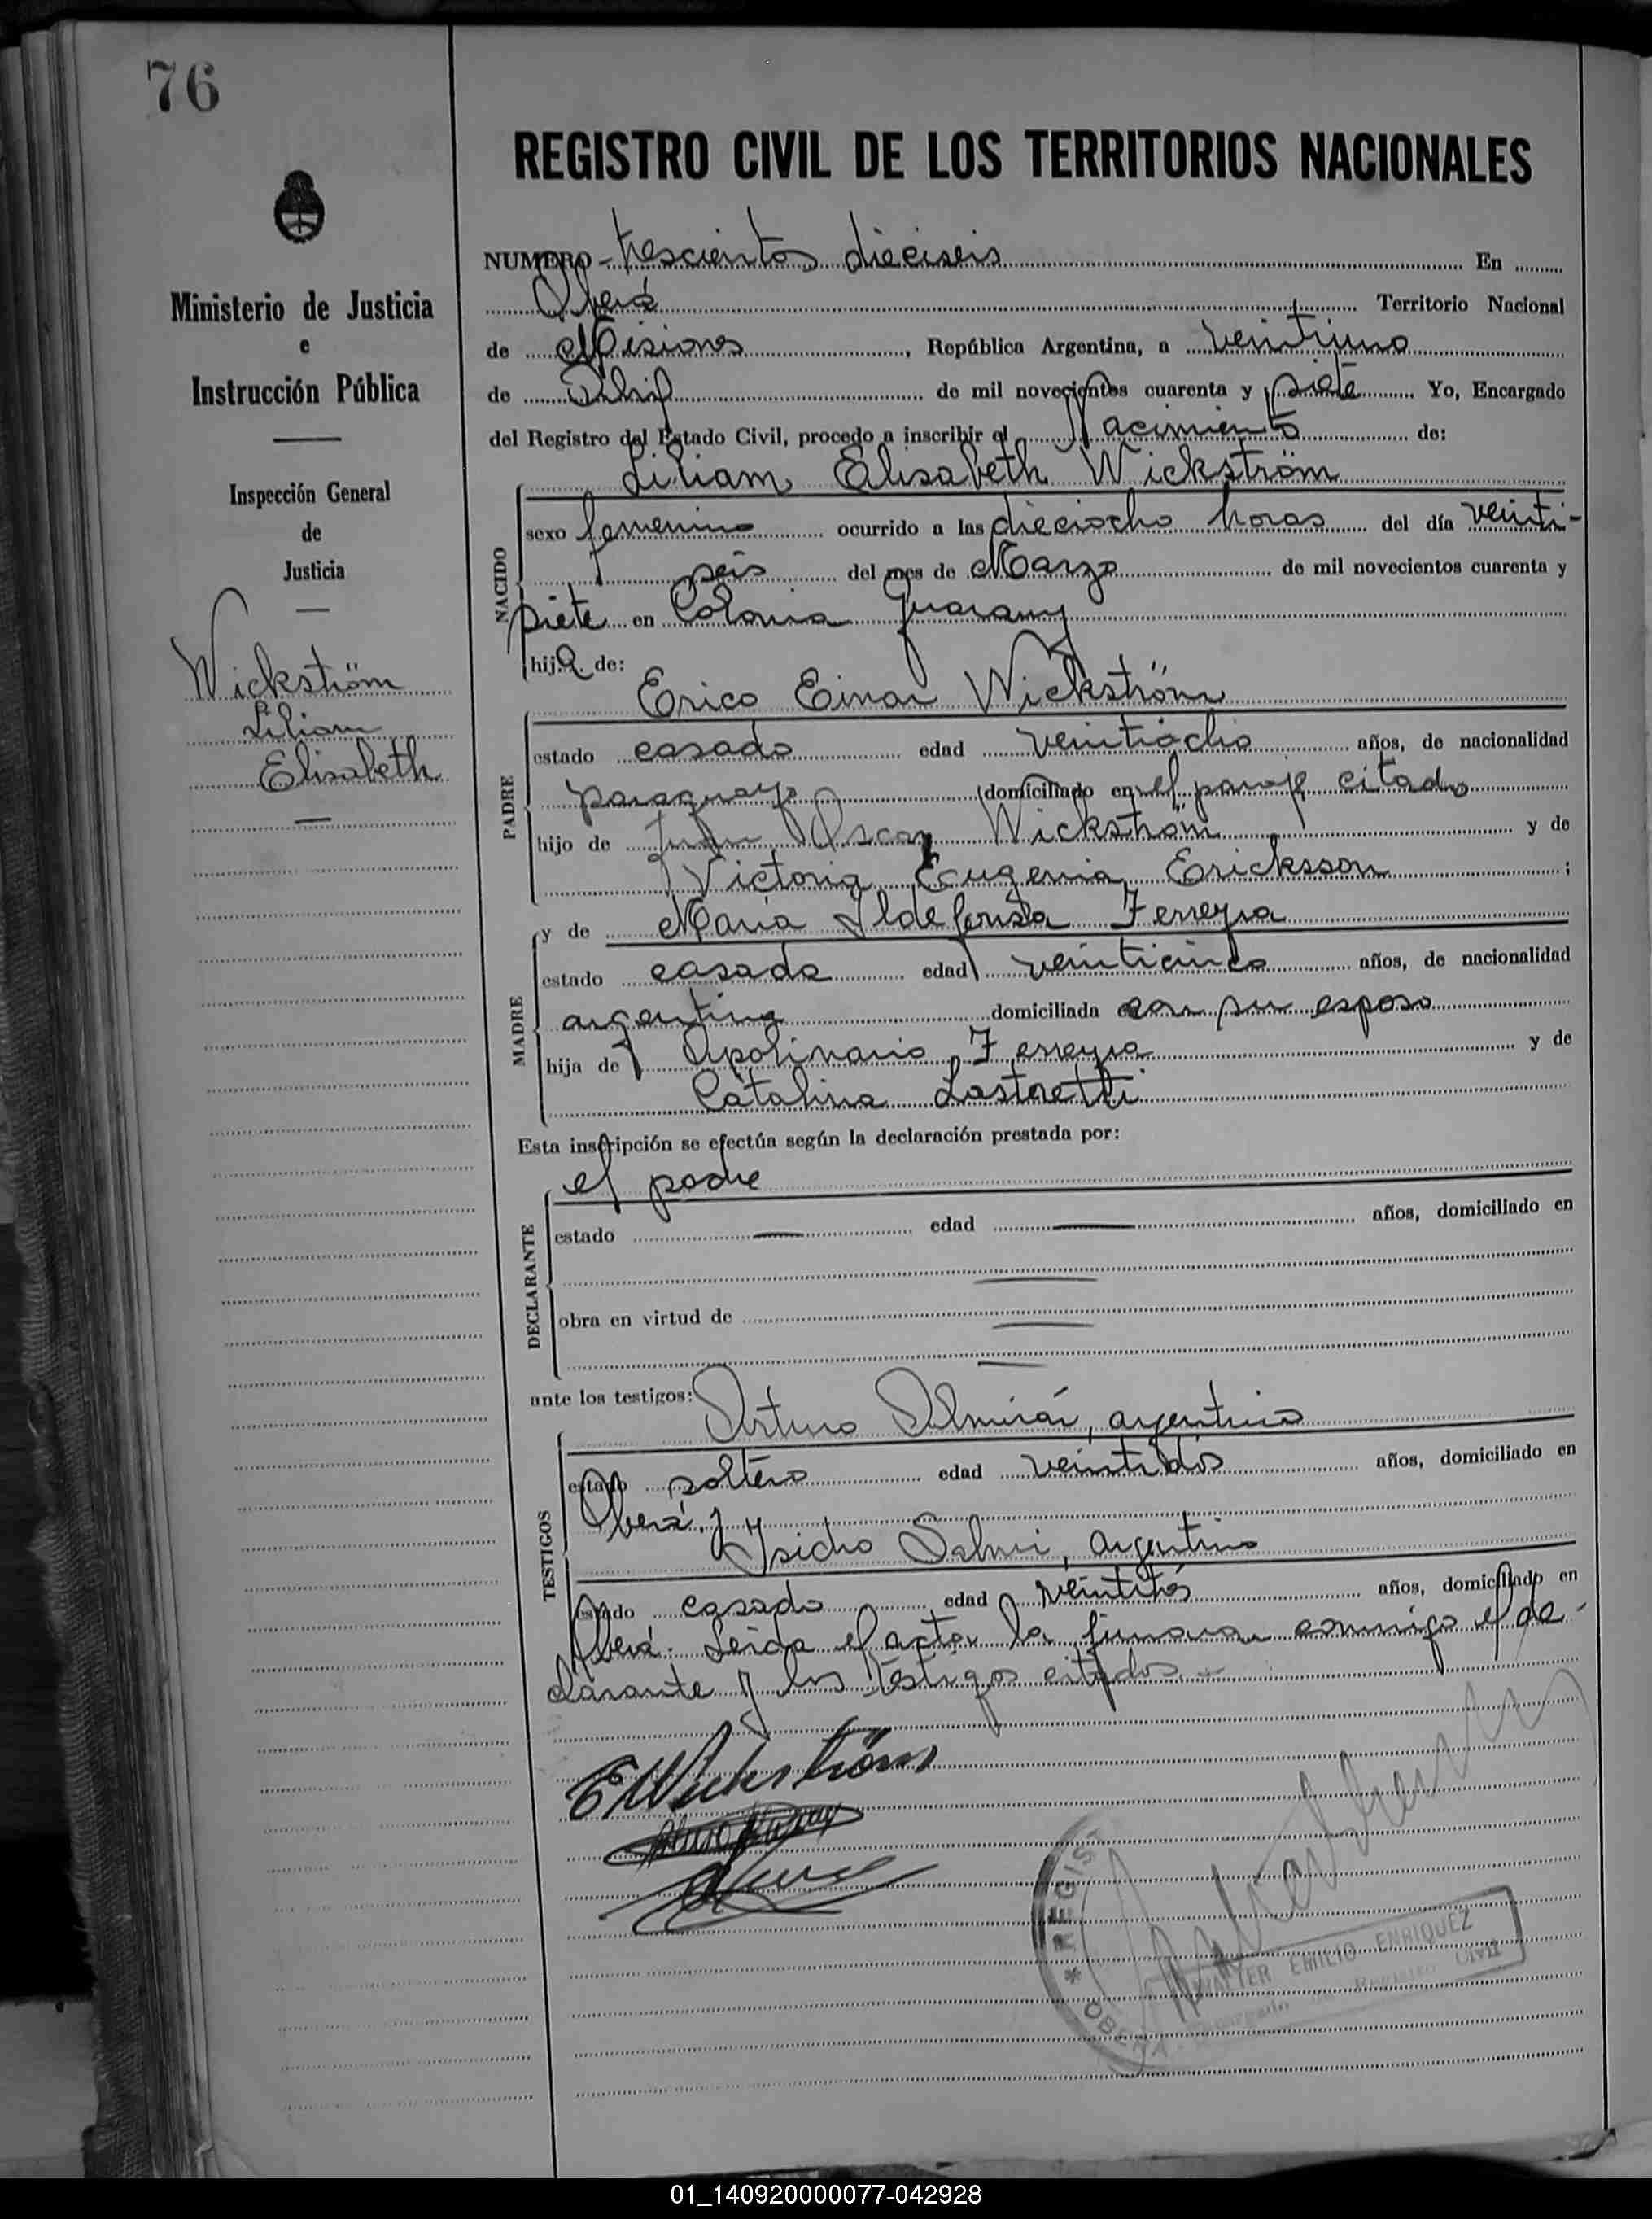 76
REGISTRO CIVIL DE LOS TERRITORIOS NACIONALES
Ministerio de Justicia
e
Instrucción Pública
Inspección General
de
Justicia
Wickström
Liliam
Elisabeth
NUMERO - trescientos dieciseis En
Oberá Territorio Nacional
de Misiones, República Argentina, a veintiuno
de Abril de mil novecientos cuarenta y siete Yo, Encargado
del Registro del Estado Civil, procedo a inscribir el Nacimiento de:
NACIDO
Liliam Elisabeth Wickström
sexo femenino ocurrido a las dieciocho horas del día veinti-
seis del mes de Marzo de mil novecientos cuarenta y
siete en Colonia Guarany
hija de:
PADRE
Erico Einar Wickström
estado casado edad veintiocho años, de nacionalidad
paraguayo domiciliado en el paraje citado
hijo de Oscar Wickström y de
Victoria Eugenia Ericksson;
MADRE
y de María Ildefonsa Ferreyra
estado casada edad veinticinco años, de nacionalidad
argentina domiciliada con su esposo
hija de Apolinario Ferreyra y de
Catalina Lastoretti
Esta inscripción se efectúa según la declaración prestada por:
DECLARANTE
el padre
estado — edad — años, domiciliado en
obra en virtud de
ante los testigos: Arturo Almirán, argentino
TESTIGOS
estado soltero edad veintidós años, domiciliado en
Oberá. y
Ysidro argentino
estado casado edad veintitrés años, domiciliado en
Oberá. Leida el acta, la firman conmigo el de-
clarante y los testigos citados -
EWickström
REGIS
* OBERA
WALTER EMILIO ENRIQUEZ
Encargado del Registro Civil
01_140920000077-042928